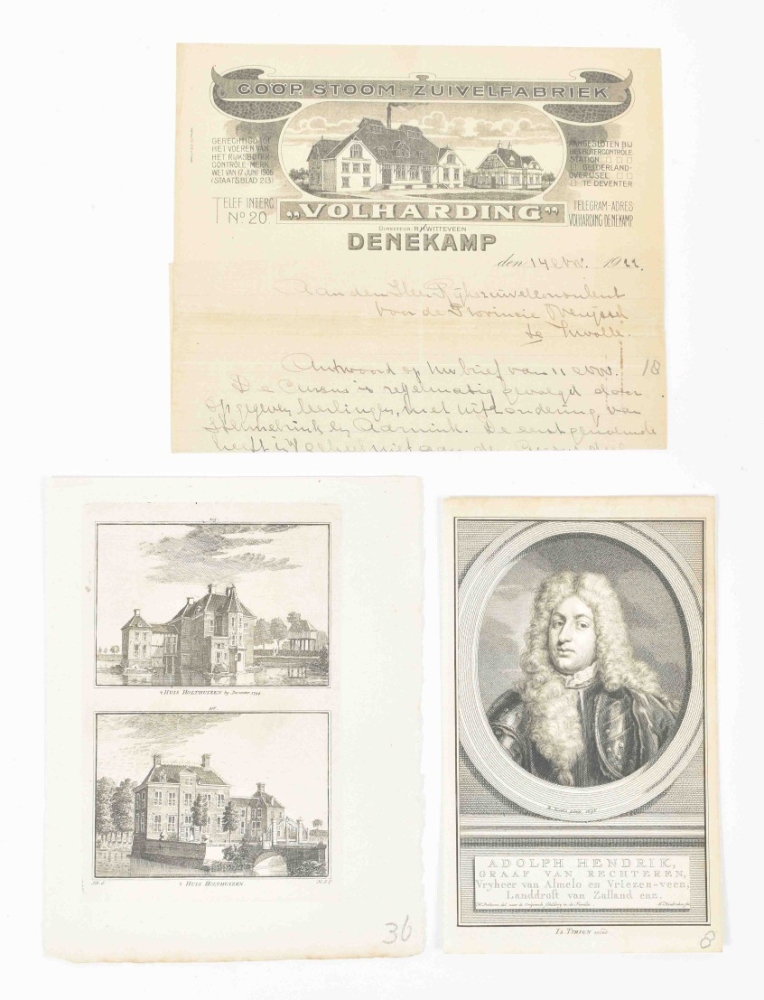 COÖP. STOOM-ZUIVELFABRIEK
GERECHTIGD TOT
HET VOEREN VAN
HET RIJKSBOTER-
CONTRÔLE MERK
WET VAN 17 JUNI 1905
(STAATSBLAD 213)
AANGESLOTEN BIJ
HET BOTERCONTRÔLE
STATION
GELDERLAND-
OVERIJSEL
TE DEVENTER
TELEF INTERC
No 20
TELEGRAM-ADRES
VOLHARDING DENEKAMP
„VOLHARDING"
DIRECTEUR WITTEVEEN
DENEKAMP
den 14 Nov. 19
Aan den Heer Rijkszuivelconsulent
voor de Provincie Overijssel
te Zwolle.
Antwoord op Uw brief van 11 Nov.
18
De Cursus is regelmatig gevolgd door
opgegeven leerlingen, met uitzondering van
en Aarnink. De eerstgenoemde
heeft
't HUIS HOLTHUISEN by Deventer
't HUIS HOLTHUISEN
36
ADOLPH HENDRIK,
GRAAF VAN RECHTEREN,
Vryheer van Almelo en Vriezen-veen,
Landdrost van Zalland enz.
I. TIRION
8